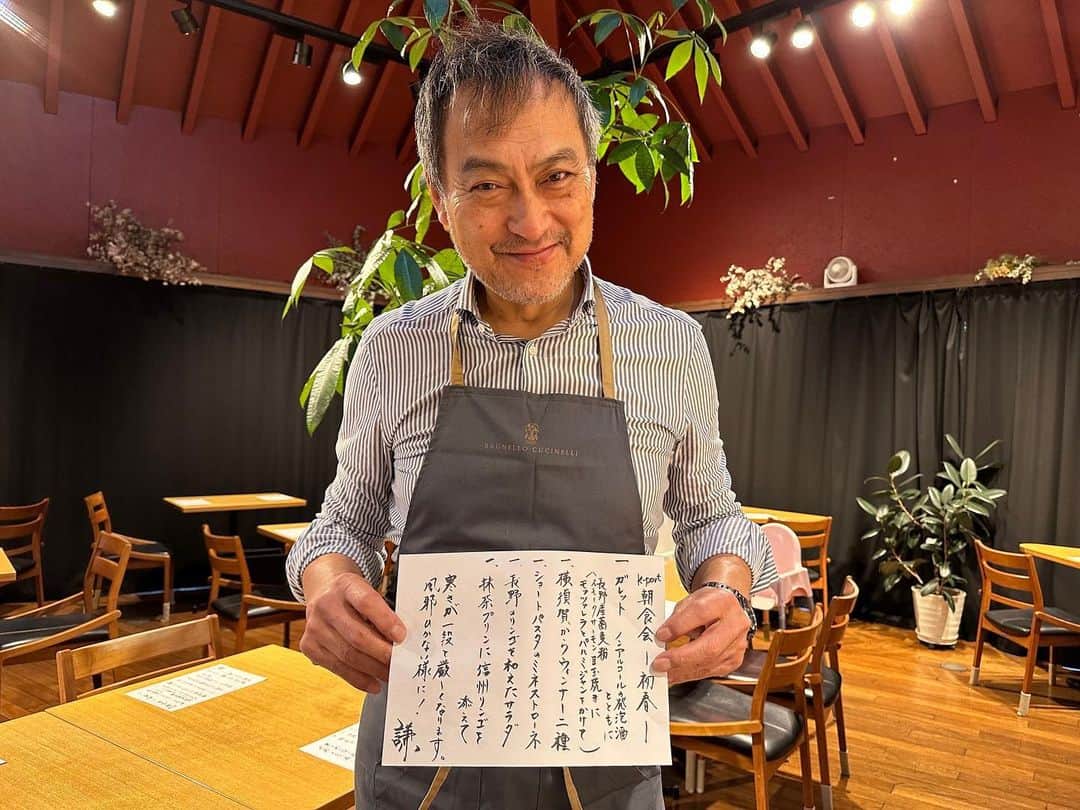 BRUNELLO CUCINELLI
k-port 朝食会 ー初春ー
一 ガレット ノンアルコールの発泡酒とともに
(長野産蕎麦粉
モッツァレラとパルミジャンをかけて)
一、横須賀かのウィンナー二種
一、ショートパスタのミネストローネ
一、長野のリンゴを和えたサラダ
一、抹茶プリンに信州リンゴを
添えて
寒さが一段と厳しくなります。
風邪ひかない様に!
謙。